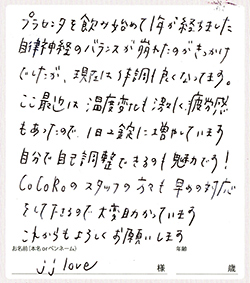 プラセンタを飲み始めて1年が経ちました
自律神経のバランスが崩れたのがきっかけ
でしたが、現在は体調も良くなってます。
ここ最近は温度変化も激しく、疲労感
もあったので、1日2錠に増やしています
自分で自己調整できるのも魅力です!
CoCoRoのスタッフの方々も早めの対応
をしてくださるので大変助かっています
これからもよろしくお願いします
お名前(本名orペンネーム) 年齢
jj love 様 歳